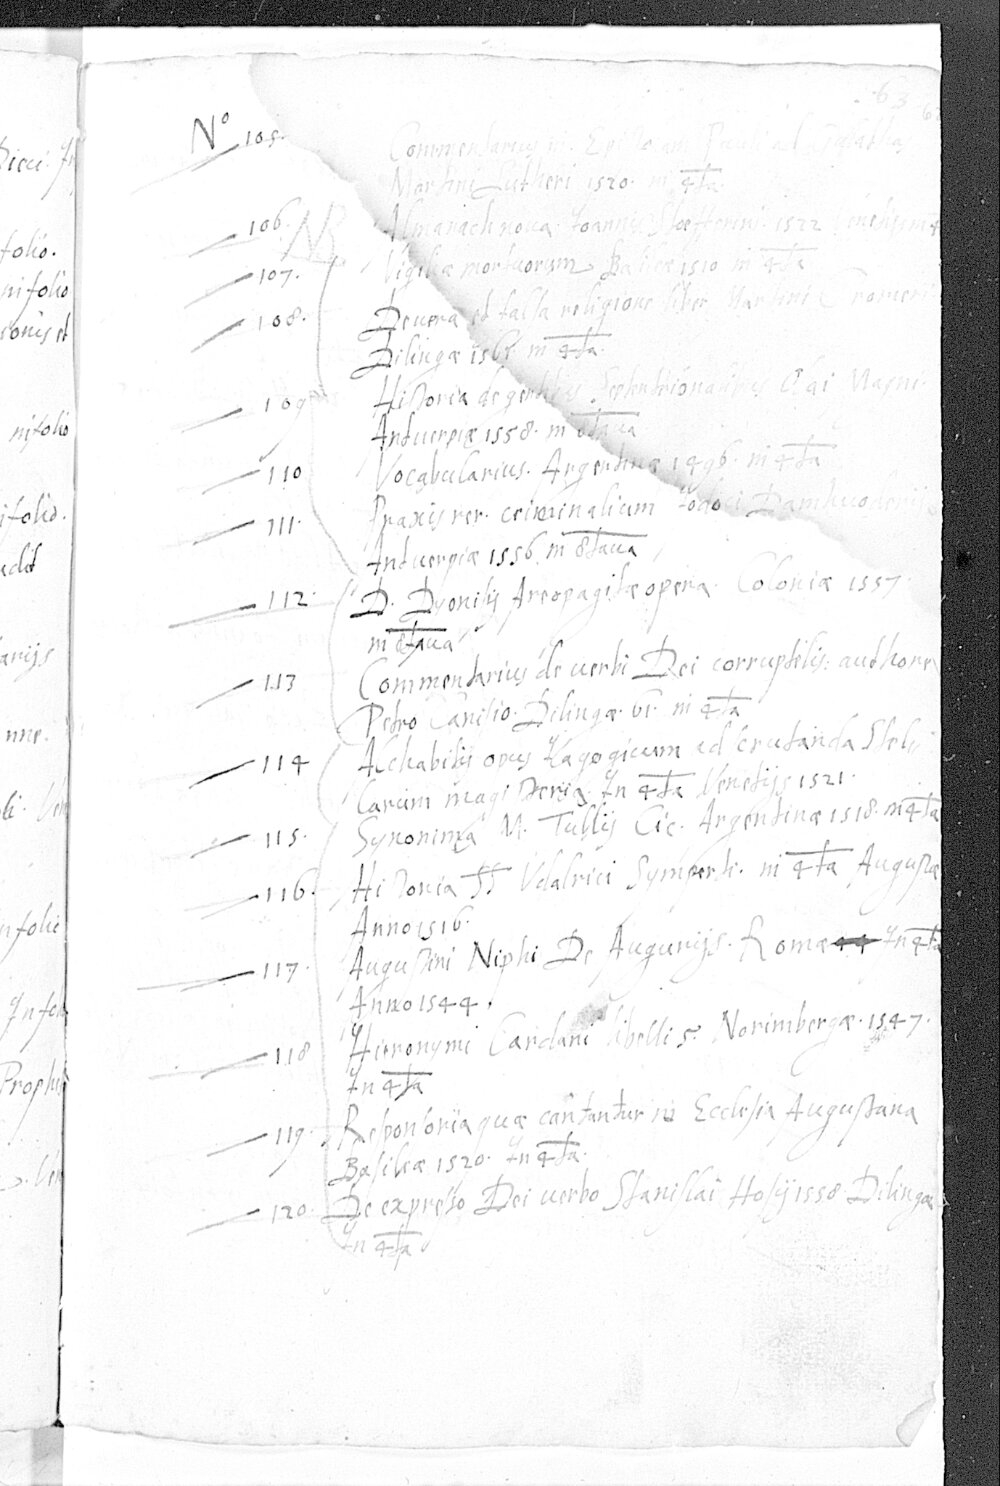 63
Nº 105. Commentarius in Epistolam Pauli ad Galathas
Martini Lutheri 1520. in 4ta
106. Almanach nova Joannis Stoefferini 1522 Venetijs in 4
107. Vigiliæ mortuorum Basileæ 1510 in 4ta
108. De vera et falsa religione liber Martini Cromeri
Dilingæ in 4ta.
109 Historia de gentibus Septentrionalibus Olai Magni.
Antverpiæ 1558. in 8tava
110 Vocabularius. Argentinæ 1496. in 4ta
111. Praxis rer. criminalium Jodoci Damhuoderij
Antverpiæ 1556. in 8tava
112. D. Dyonisij Areopagitæ opera. Coloniæ 1557.
in 8tava
113 Commentarius de verbi Dei corruptelis: authore
Petro Canisio. Dilingæ. 61. in 4ta
114 Alchabitij opus ad scrutanda Stel-
larum magisteria. In 4ta Venetijs 1521.
115. Synonima M. Tullij Cic. Argentinæ 1518. in 4ta
116. Historia SS Udalrici Symperti. in 4ta Augustæ
Anno 1516.
117. Augustini Niphi De Augurijs. Romæ In 4ta
Anno 1544.
118 Hieronymi Cardani libelli 5. Norimbergæ. 1547.
In 4ta
119. Responsoria quæ cantantur in Ecclesia Augustana
Basileæ 1520. In 4ta.
120. De expresso Dei verbo Stanislai Hosij 1558 Dilingæ
In 4ta
folio.
in folio
in folio
in folio.
arijs